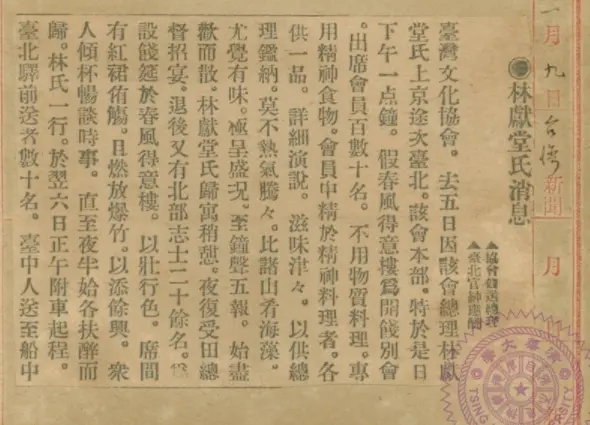 一月九日台湾新聞 月
●林獻堂氏消息
▲協會餞送總理
▲臺北官紳連
臺灣文化協會。去五日因該會總理林獻
堂氏上京途次臺北。該會本部。特於是日
下午一点鐘。假春風得意樓爲開餞別會
。出席會員百數十名。不用物質料理。專
用精神食物。會員中精於精神料理者。各
供一品。詳細演說。滋味津々。以供總
理鑑納。莫不熱氣騰々。比諸山肴海藻。
尤覺有味。極呈盛况。至鐘聲五報。始盡
歡而散。林獻堂氏歸寓稍憩。夜復受田總
督招宴。退後又有北部志士二十餘名。爲
設餞筵於春風得意樓。以壯行色。席間
有紅裙侑觴。且燃放爆竹。以添餘興。衆
人傾杯暢談時事。直至夜半始各扶醉而
歸。林氏一行。於翌六日正午附車起程。
臺北驛前送者數十名。臺中人送至船中